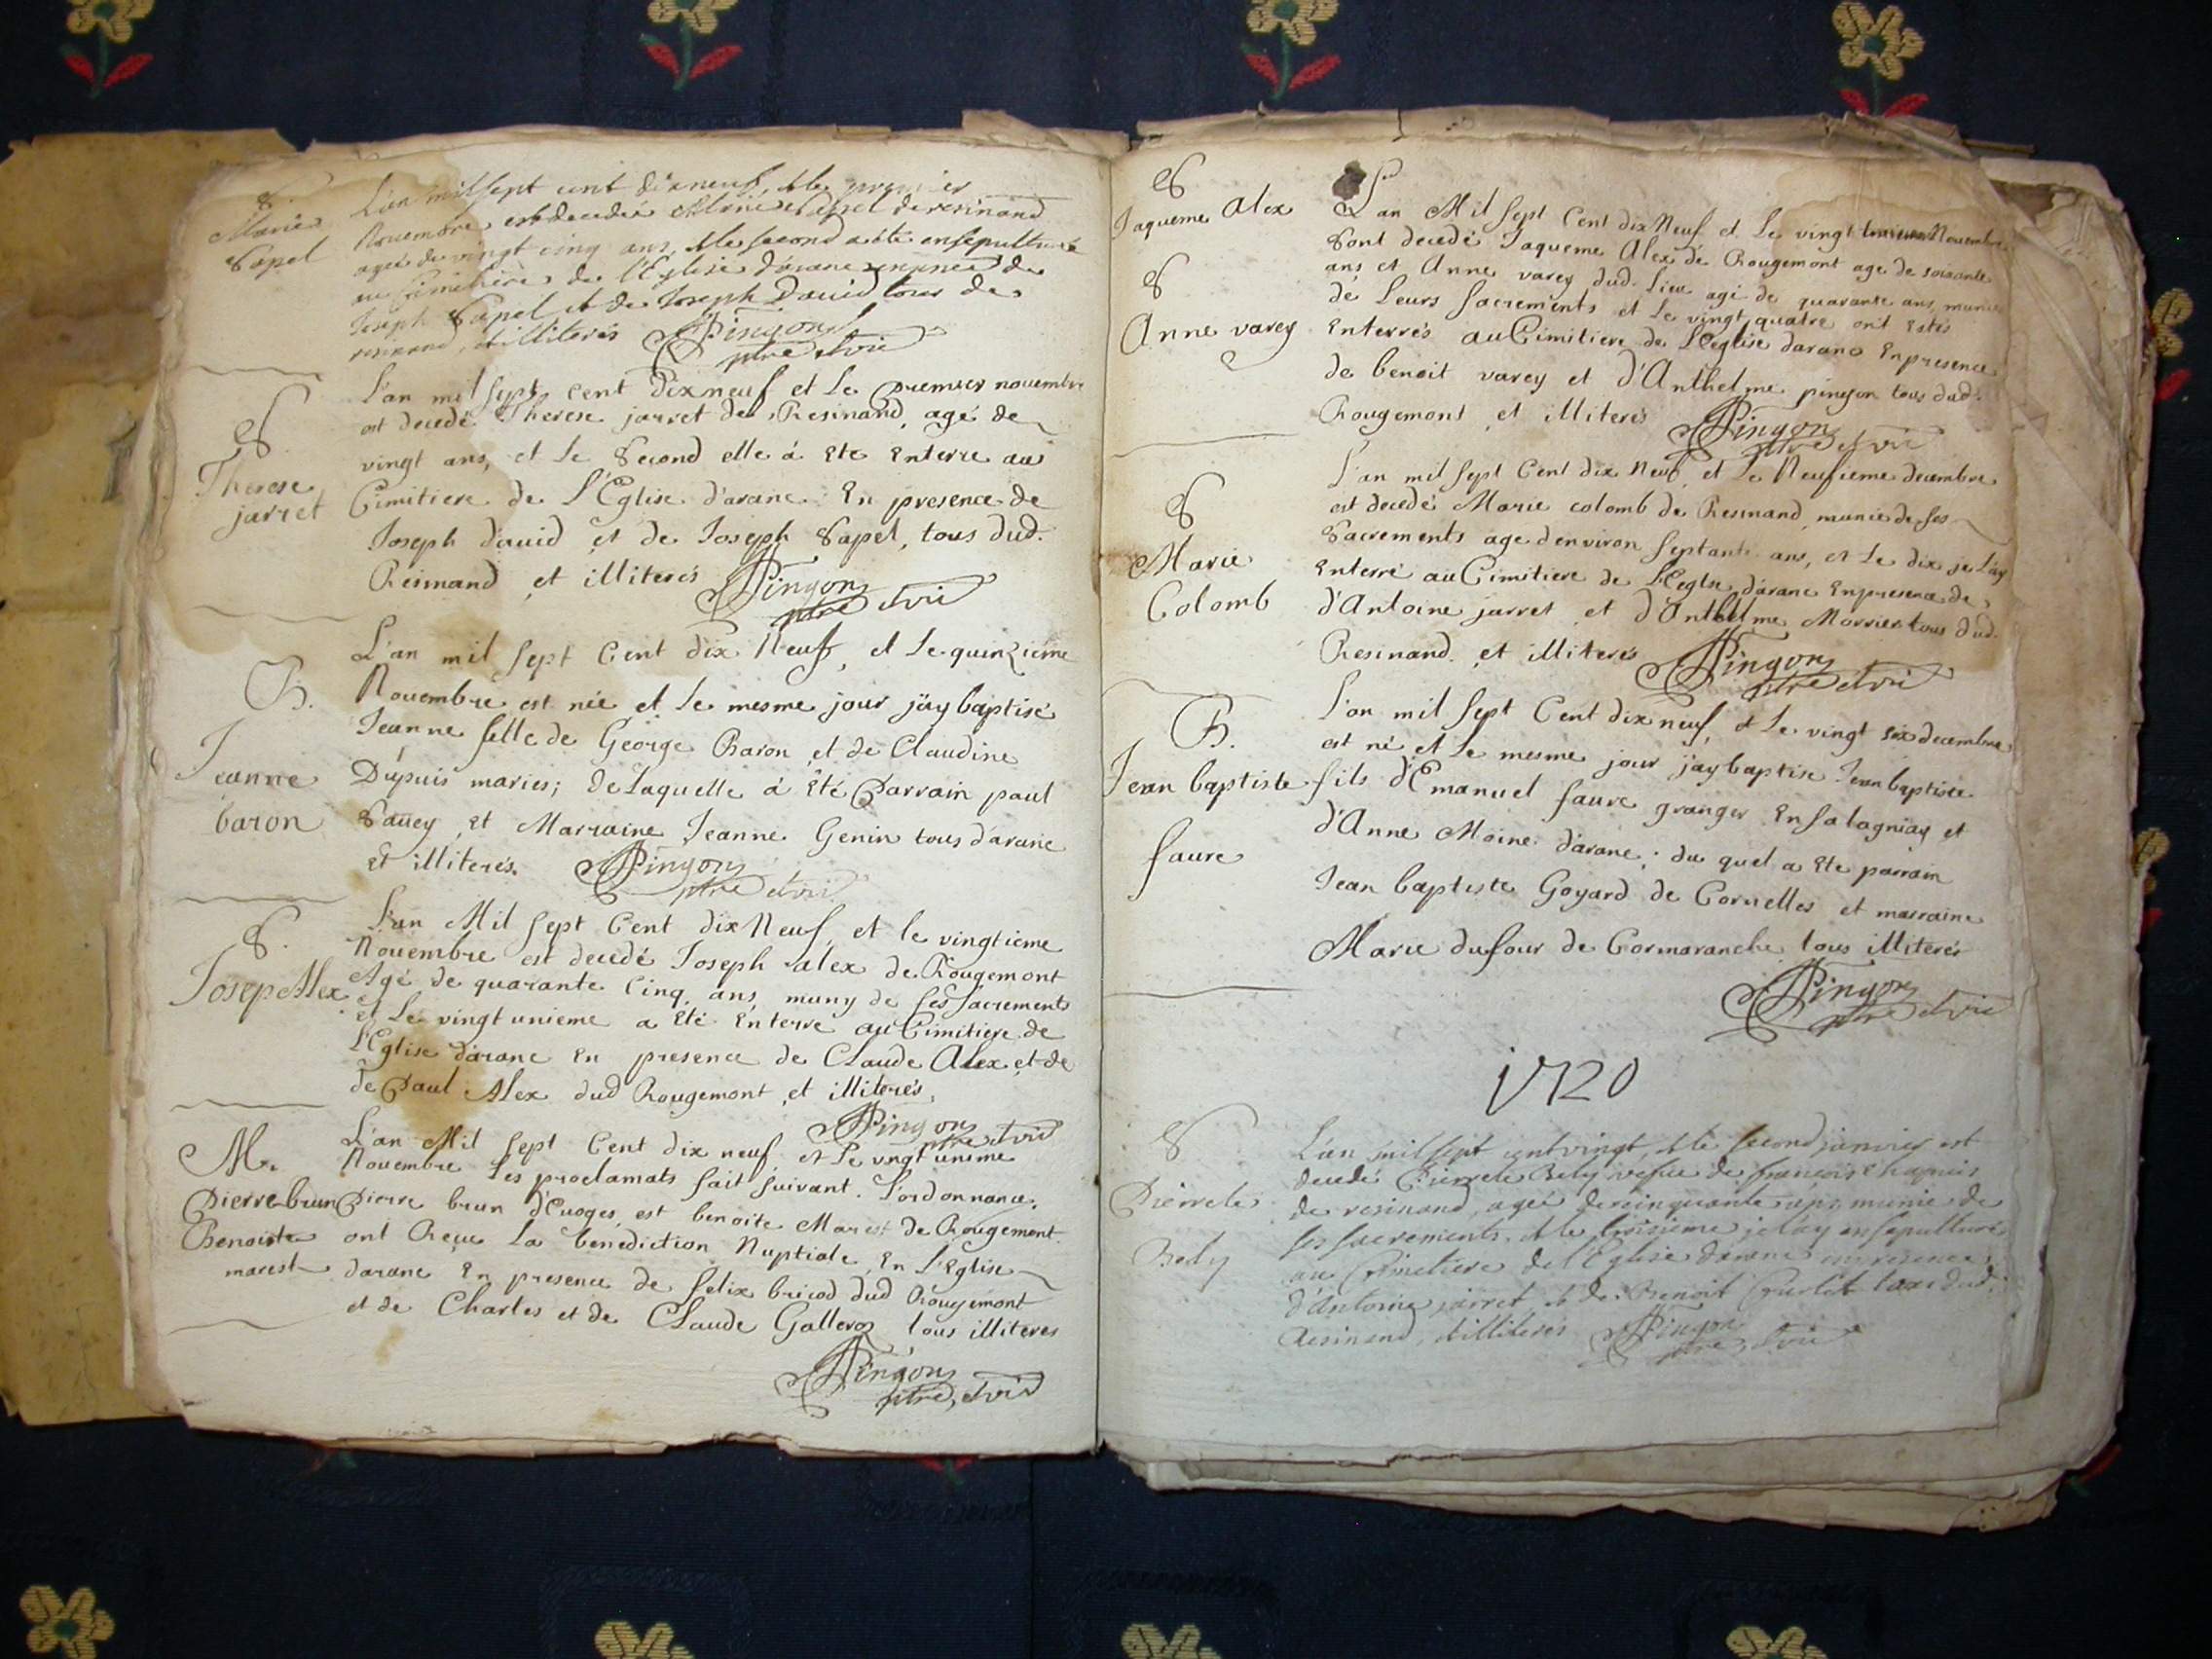 S.
Marie
Sapel
L'an mil sept cent dixneuf, & le premier
Nouembre est decedée Marie Sapel de resinand
agée de vingt cinq ans, & le second a été ensepulturée
au Cimetiere de l'Eglise d'arane en presence de
Joseph Sapel et de Joseph Dauid tous de
resinand, & illiterés Pingon
ptre et vic
S
Therese
jarret
L'an mil sept cent Dixneuf et Le premier nouembre
est decedé Therese jarret de Resinand, agé de
vingt ans, et Le Second elle á Eté Enterre au
Cimitiere de L'Eglise d'arane. En presence de
Joseph dauid et de Joseph Sapel, tous dud.
Resinand et illiterés Pingon
ptre et vic
B.
Jeanne
baron
L'an mil sept Cent dix Neuf, et Le quinzieme
Nouembre est née et Le mesme jour j'ay baptisé
Jeanne fille de George Baron, et de Claudine
Dupuis maries; de Laquelle á Eté Parrain paul
Sauey et Marraine Jeanne Genin tous d'arane
Et illiterés. Pingon
ptre et vic
S.
Josep Alex
L'an Mil sept Cent dix Neuf, et le vingtieme
Nouembre est decedé Joseph alex de Rougemont
Agé de quarante Cinq ans, muny de ses sacrements
et Le vingt unieme a Eté Enterré au Cimitiere de
L'Eglise d'arane En presence de Claude Alex, et de
de Paul Alex dud Rougemont et illiterés,
Pingon
ptre et vic
M.
Pierre brun
Benoiste
marest
L'an Mil sept Cent dix neuf et Le vngt unime
Nouembre Les proclamats fait suivant l'ordonnance,
Pierre brun d'Euoges est benoite Marest de Rougemont
ont Reçue La benediction Nuptiale, En L'Eglise
darane En presence de felix bricod dud Rougemont
et de Charles et de Claude Galleron tous illiteres
Pingon
ptre, et vic
S
Jaqueme Alex
S
Anne varey
L'an Mil sept Cent dix Neuf et Le vingt Nouembre
Sont decedé Jaqueme Alex de Rougemont age de soixante
ans et Anne varey dud. Lieu agé de quarante ans, munis
dé Leurs sacrements et Le vingt quatre ont Estés
Enterrés au Cimitiere de L'eglise darane En presence
de benoit varey et d'Anthelme pingon tous dud.
Rougemont et illiterés Pingon
ptre et vic
S
Marie
Colomb
L'an mil sept Cent dix Neuf, et Le Neufieme decembre
est decedé Marie colomb de Resinand munie de ses
Sacrements age denviron septante ans, et Le dix je L'ay
Enterré au Cimitiere de L'Eglise d'arane En presence de
d'Antoine jarret et d'Anthelme Morrier tous dud.
Resinand. et illiterés Pingon
ptre et vic
B.
Jean baptiste
faure
L'an mil sept Cent dix neuf, et Le vingt six decembre
est né et Le mesme jour j'ay baptise Jean baptiste
fils d'Emanuel faure granger En salagniay et
d'Anne Moine d'arane; du quel a Eté parrain
Jean baptiste Goyard de Cornelles et marraine
Marie dufour de Cormaranche tous illiterés
Pingon
ptre et vic
1720
S
Pierrete
Bely
L'an mil sept cent vingt, & le second janvier est
decedé Pierrete Bely vefue de francois Chapuis
de resinand, agée de cinquante ans, munie de
ses sacrements. & le troisieme je l'ay ensepulturé
au Cimetiere de l'Eglise d'arane en presence
d'Antoine jarret & de Benoit tous dud.
Resinand, & illiterés Pingon
ptre et vic